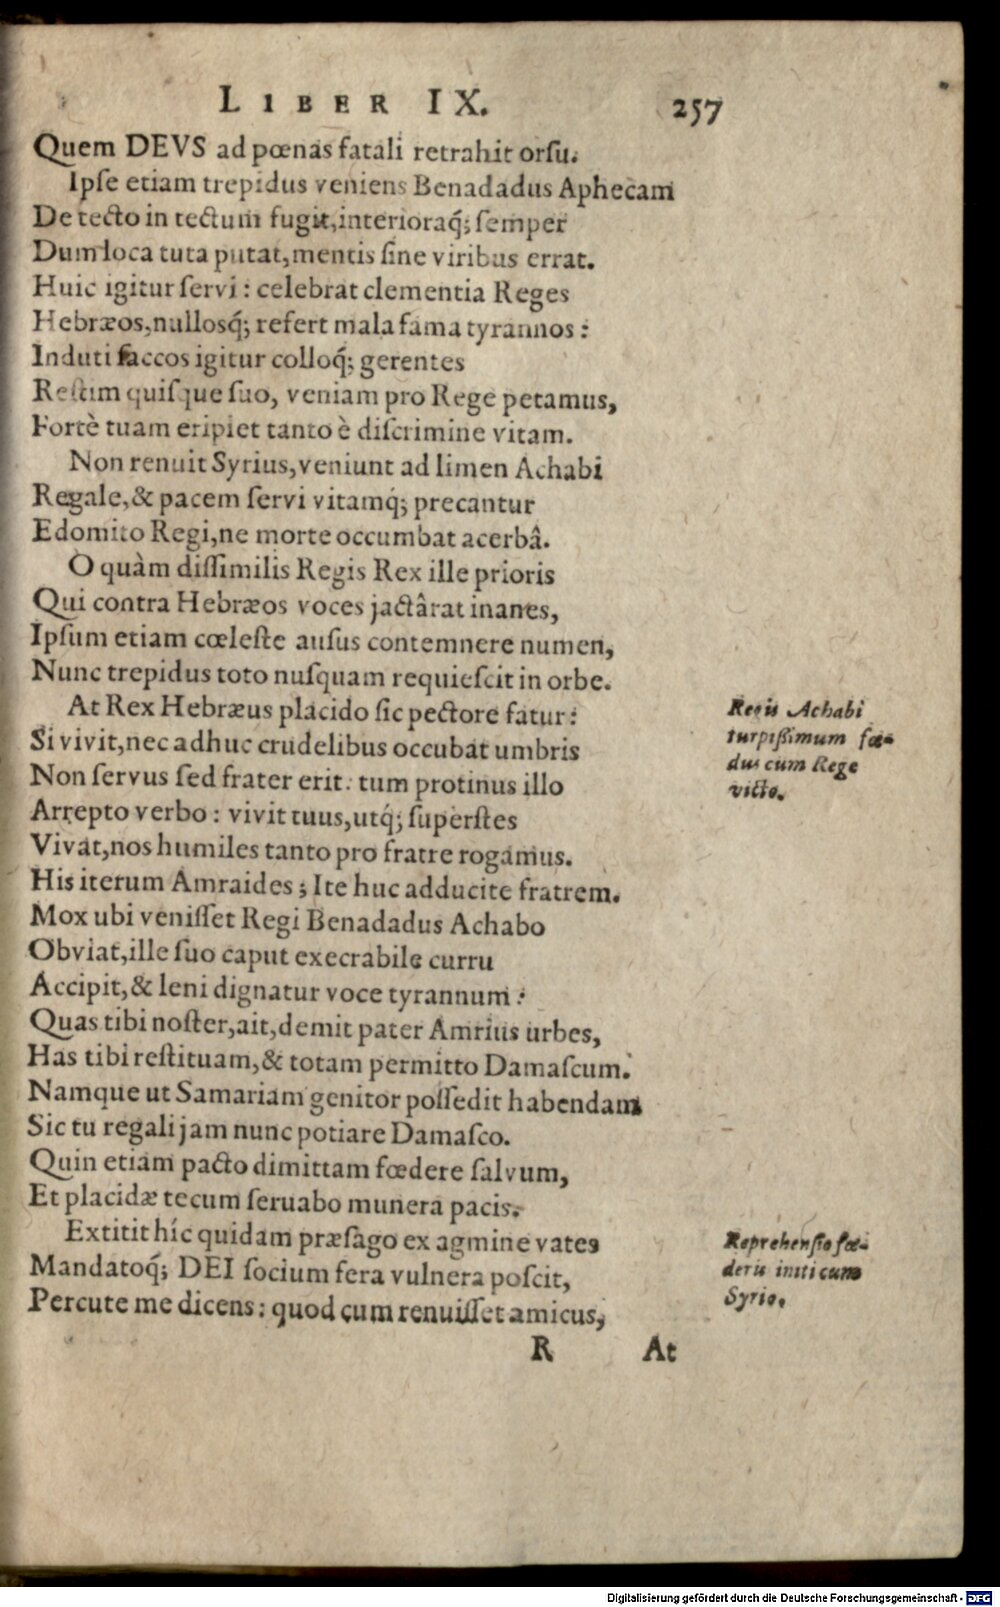 LIBER IX. 257
Quem DEVS ad pœnas fatali retrahit orsu.
Ipse etiam trepidus veniens Benadadus Aphecam
De tecto in tectum fugit, interioraq́; semper
Dum loca tuta putat, mentis sine viribus errat.
Huic igitur servi: celebrat clementia Reges
Hebræos, nullosq́; refert mala fama tyrannos:
Induti saccos igitur colloq́; gerentes
Restim quisque suo, veniam pro Rege petamus,
Fortè tuam eripiet tanto è discrimine vitam.
Non renuit Syrius, veniunt ad limen Achabi
Regale, & pacem servi vitamq́; precantur
Edomito Regi, ne morte occumbat acerbâ.
O quàm dissimilis Regis Rex ille prioris
Qui contra Hebræos voces jactârat inanes,
Ipsum etiam cœleste ausus contemnere numen,
Nunc trepidus toto nusquam requiescit in orbe.
At Rex Hebræus placido sic pectore fatur:
Si vivit, nec adhuc crudelibus occubat umbris
Non servus sed frater erit: tum protinus illo
Arrepto verbo: vivit tuus, utq́; superstes
Vivat, nos humiles tanto pro fratre rogamus.
His iterum Amraides; Ite huc adducite fratrem.
Mox ubi venisset Regi Benadadus Achabo
Obviat, ille suo caput execrabile curru
Accipit, & leni dignatur voce tyrannum:
Quas tibi noster, ait, demit pater Amrius urbes,
Has tibi restituam, & totam permitto Damascum.
Namque ut Samariam genitor possedit habendam
Sic tu regali jam nunc potiare Damasco.
Quin etiam pacto dimittam fœdere salvum,
Et placidæ tecum seruabo munera pacis.
Extitit híc quidam præsago ex agmine vates
Mandatoq́; DEI socium fera vulnera poscit,
Percute me dicens: quod cum renuisset amicus,
R At
Regis Achabi
turpissimum fœ-
dus cum Rege
victo.
Reprehensio fœ-
deris initi cum
Syrio.
Digitalisierung gefördert durch die Deutsche Forschungsgemeinschaft - DFG